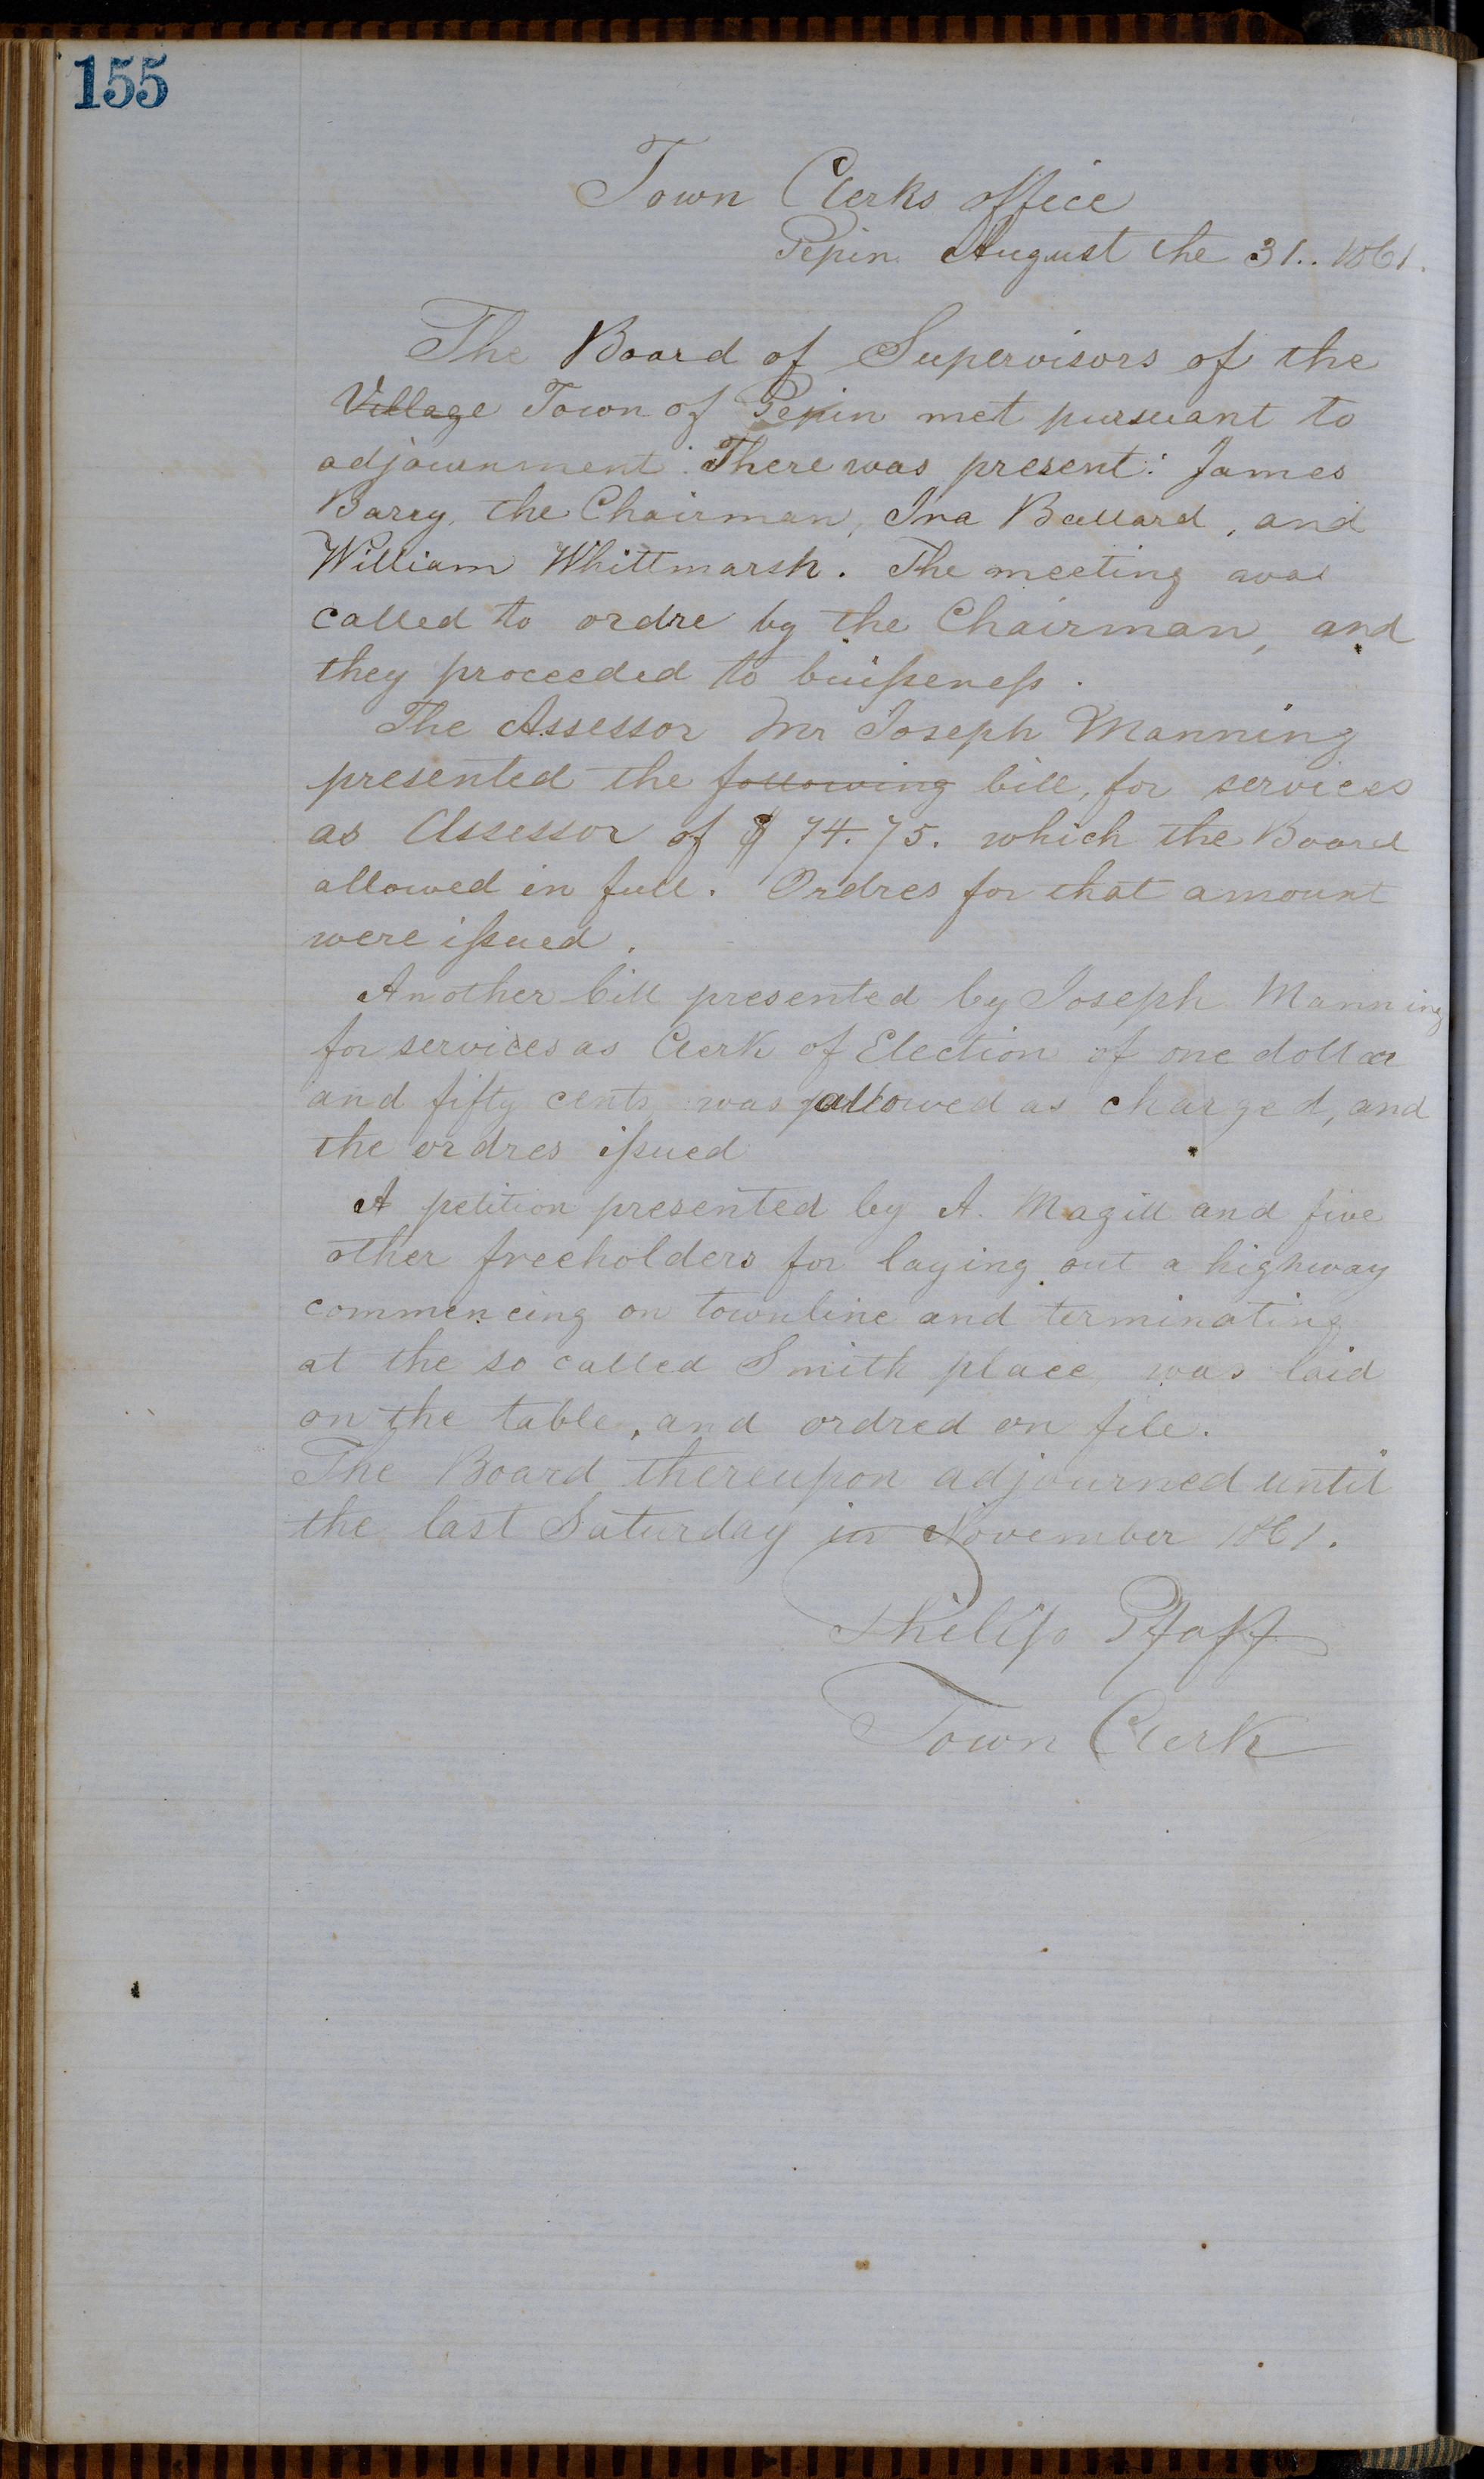 155
Town Clerks office
Pepin August the 31.. 1861.
The Board of Supervisors of the
Village Town of Pepin met pursuant to
adjournment. There was present: James
Barry, the Chairman, Ira Ballard, and
William Whittmarsh. The meeting was
called to ordre by the Chairman, and
they proceeded to buisseness.
The Assessor Mr Joseph Manning
presented the following bill, for services
as Assessor of $ 74.75. which the Board
allowed in full. Ordres for that amount
were issued.
Another bill presented by Joseph Manning
for services as Clerk of Election of one dollar
and fifty cents was allowed as charged, and
the ordres issued
A petition presented by A. Magill and five
other freeholders for laying out a highway
commencing on townline and terminating
at the so called Smith place was laid
on the table, and ordred on file.
The Board thereupon adjourned until
the last Saturday in November 1861.
Philip Pfaff
Town Clerk